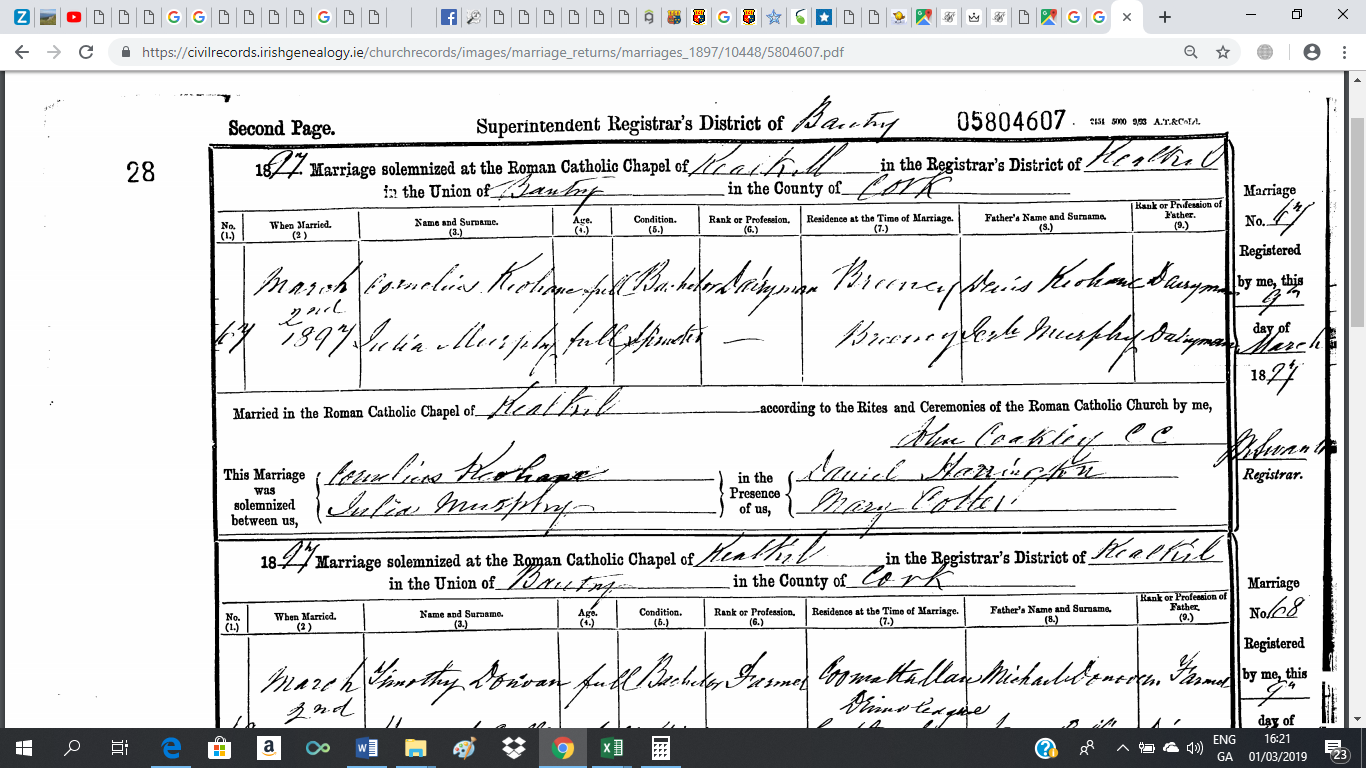 https://civilrecords.irishgenealogy.ie/churchrecords/images/marriage_returns/marriages_1897/10448/5804607.pdf
Second Page. Superintendent Registrar's District of Bantry 05804607
28
1897. Marriage solemnized at the Roman Catholic Chapel of Kealkill in the Registrar's District of Kealkil
in the Union of Bantry in the County of Cork
Marriage
No. 67
No. When Married. Name and Surname. Age. Condition. Rank or Profession. Residence at the Time of Marriage. Father's Name and Surname. Rank or Profession of Father.
(1.) (2) (3.) (4.) (5.) (6.) (7.) (8.) (9.)
Registered
by me, this
9th
day of
March
1897
March Cornelius Keohane full Bachelor Dairyman Breeney Denis Keohane Dairyman
2nd
67 1897 Julia Murphy full Spinster — Breeney Jerh Murphy Dairyman
Married in the Roman Catholic Chapel of Kealkil according to the Rites and Ceremonies of the Roman Catholic Church by me,
John Coakley CC
Registrar.
This Marriage was solemnized between us, Cornelius Keohane
Julia Murphy
in the Presence of us, Daniel Harrington
Mary Cotter
1897 Marriage solemnized at the Roman Catholic Chapel of Kealkil in the Registrar's District of Kealkil
in the Union of Bantry in the County of Cork
Marriage
No. 68
No. When Married. Name and Surname. Age. Condition. Rank or Profession. Residence at the Time of Marriage. Father's Name and Surname. Rank or Profession of Father.
(1.) (2) (3.) (4.) (5.) (6.) (7.) (8.) (9.)
Registered
by me, this
9th
day of
March Timothy Donovan full Bachelor Farmer Michael Donovan Farmer
2nd
ENG
GA
16:21
01/03/2019
23